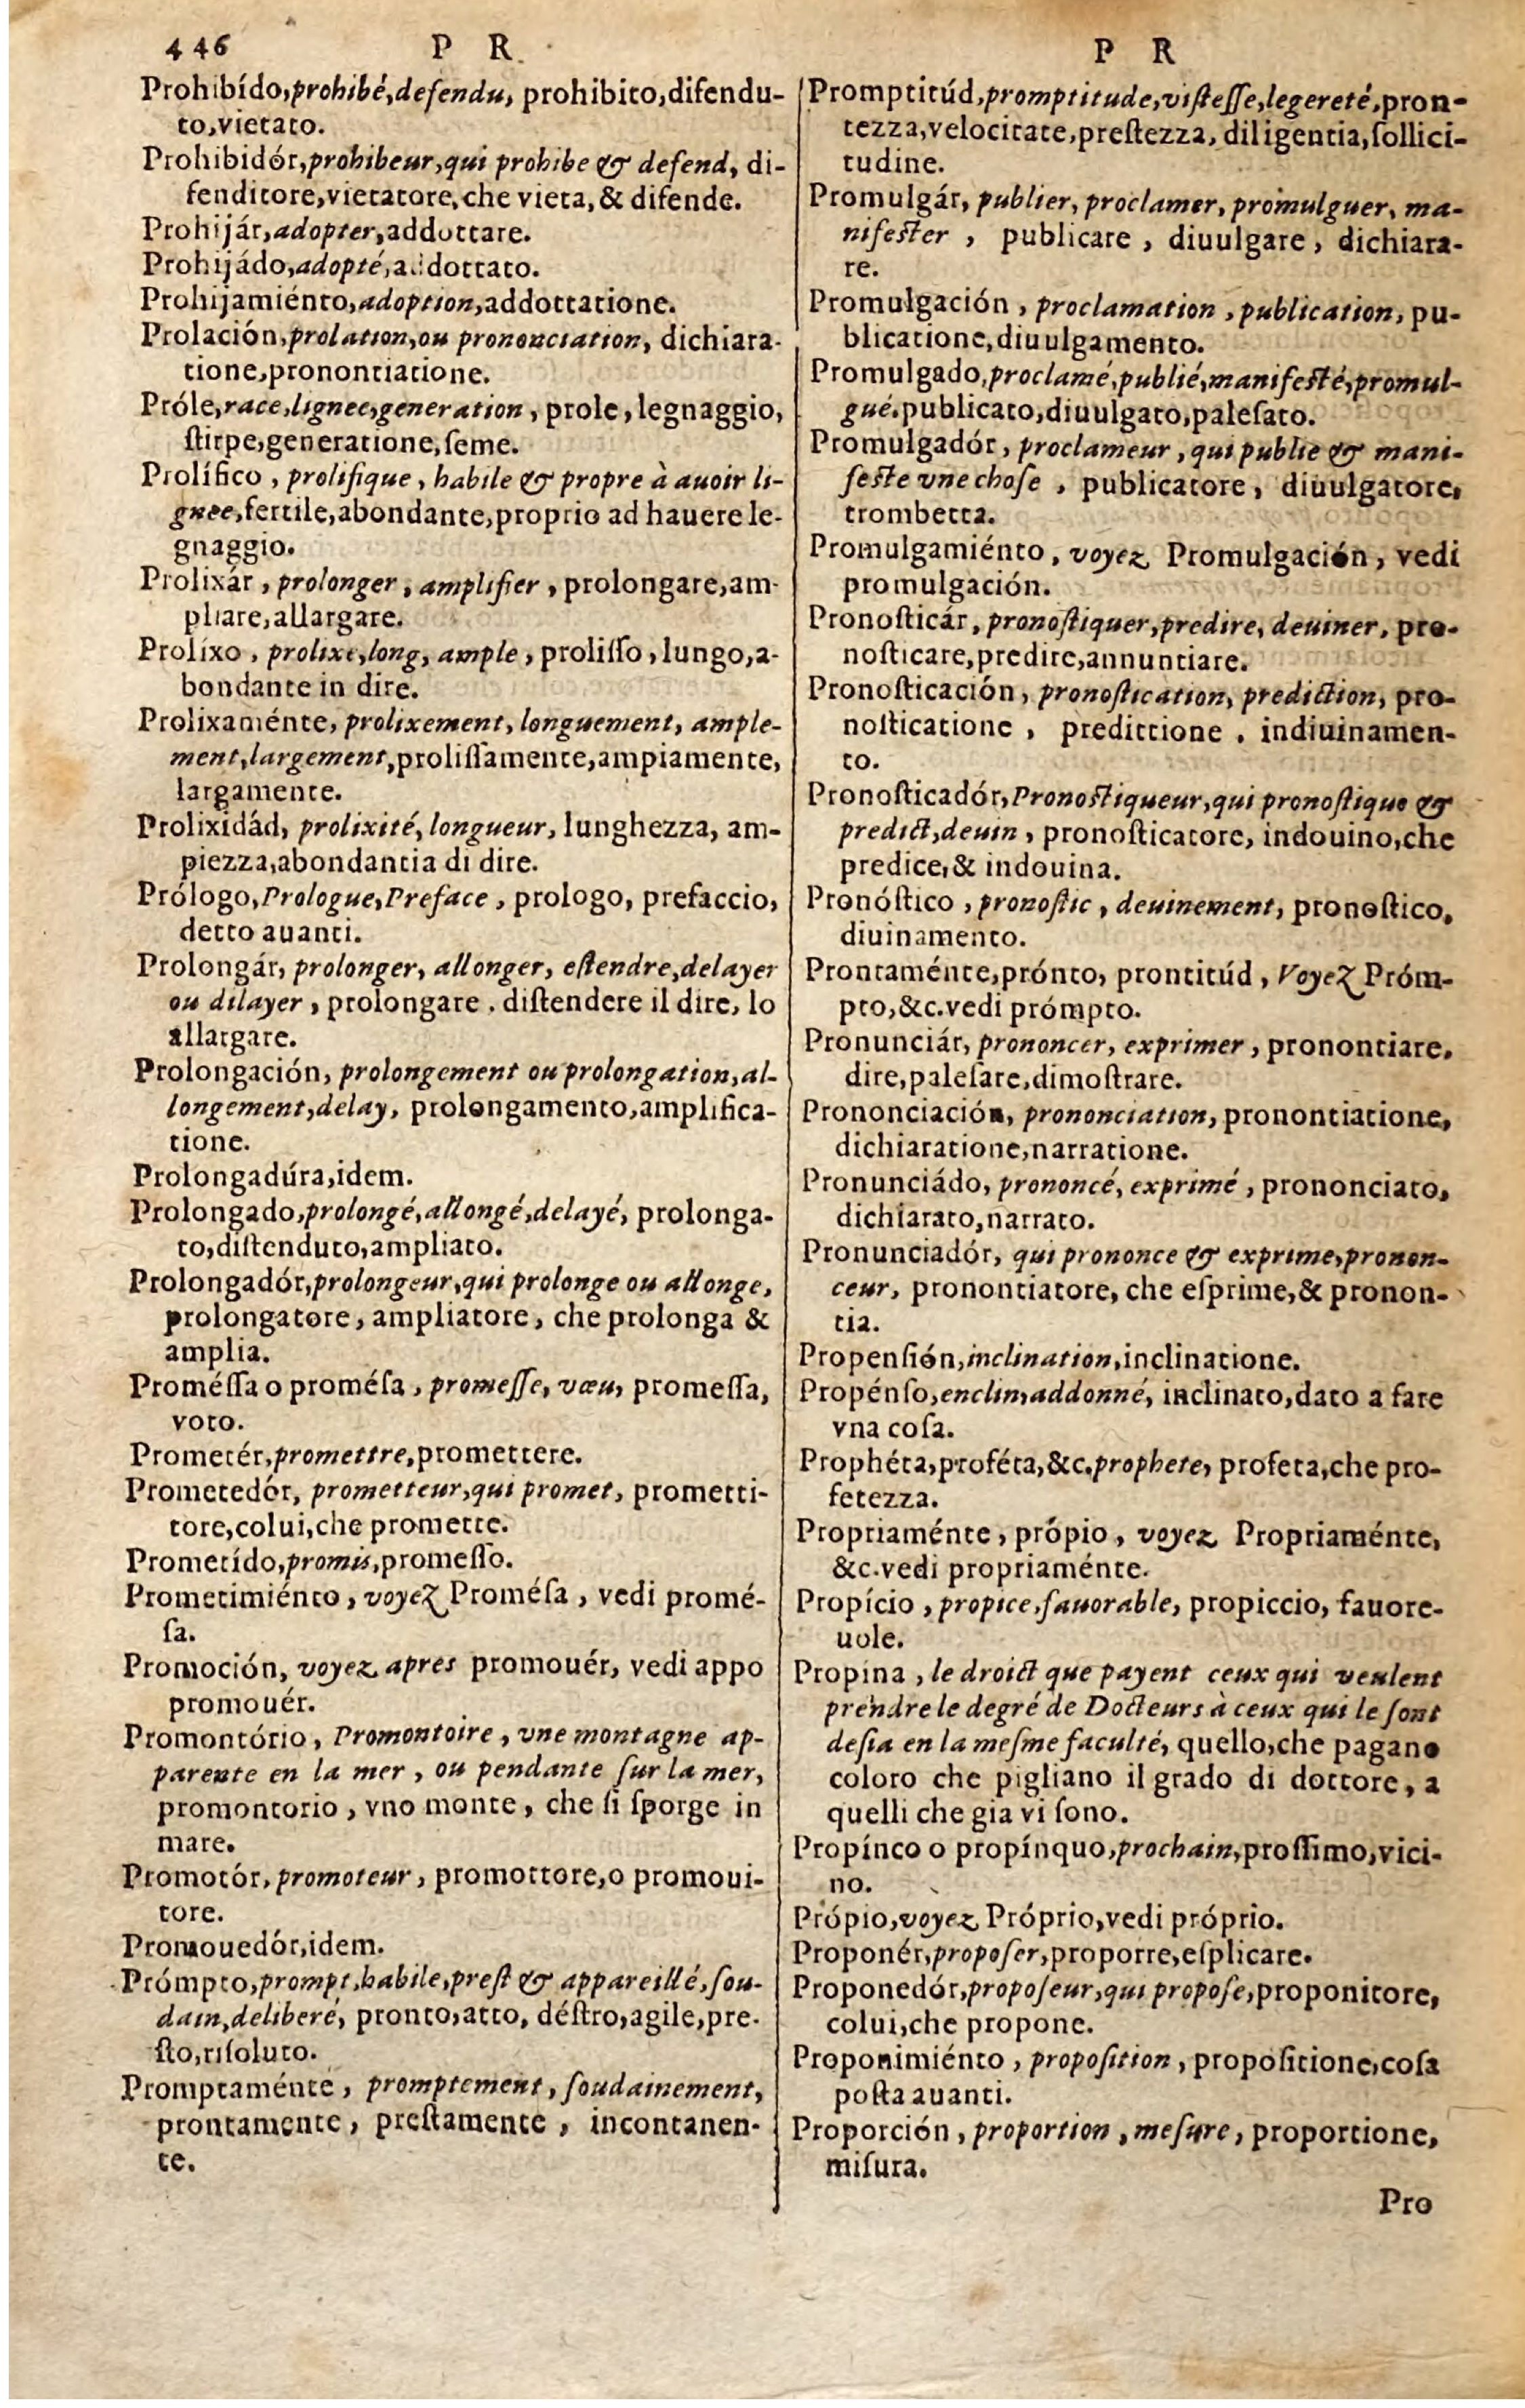 446 P R
Prohibído, prohibé, defendu, prohibito, difendu-
to, vietato.
Prohibidór, prohibeur, qui prohibe & defend, di-
fenditore, vietatore, che vieta, & difende.
Prohijár, adopter, addottare.
Prohijádo, adopté, addottato.
Prohijamiénto, adoption, addottatione.
Prolación, prolation, ou prononciation, dichiara-
tione, prononciatione.
Próle, race, lignee, generation, prole, legnaggio,
stirpe, generatione, ſeme.
Prolífico, prolifique, habile & propre à auoir li-
gnee, fertile, abondante, proprio ad hauere le-
gnaggio.
Prolixár, prolonger, amplifier, prolongare, am-
pliare, allargare.
Prolíxo, prolixe, long, ample, proliſſo, lungo, a-
bondante in dire.
Prolixaménte, prolixement, longuement, ample-
ment, largement, proliſſamente, ampiamente,
largamente.
Prolixidád, prolixité, longueur, lunghezza, am-
piezza, abondantia di dire.
Prólogo, Prologue, Preface, prologo, prefaccio,
detto auanti.
Prolongár, prolonger, allonger, eſtendre, delayer
ou dilayer, prolongare, diſtendere il dire, lo
allargare.
Prolongación, prolongement ou prolongation, al-
longement, delay, prolongamento, amplifica-
tione.
Prolongadúra, idem.
Prolongado, prolongé, allongé, delayé, prolonga-
to, diſtenduto, ampliato.
Prolongadór, prolongeur, qui prolonge ou allonge,
prolongatore, ampliatore, che prolonga &
amplia.
Proméſſa o proméſa, promeſſe, vœu, promeſſa,
voto.
Prometér, promettre, promettere.
Prometedór, prometteur, qui promet, prometti-
tore, colui, che promette.
Prometído, promis, promeſſo.
Prometimiénto, voyez Proméſa, vedi promé-
ſa.
Promoción, voyez apres promouér, vedi appo
promouér.
Promontório, Promontoire, vne montagne ap-
parente en la mer, ou pendante ſur la mer,
promontorio, vno monte, che ſi ſporge in
mare.
Promotór, promoteur, promottore, o promoui-
tore.
Promouedór, idem.
Prómpto, prompt, habile, preſt & appareillé, ſou-
dain, deliberé, pronto, atto, déſtro, agile, pre-
ſto, riſoluto.
Promptaménte, promptement, ſoudainement,
prontamente, preſtamente, incontanen-
te.
P R
Promptitúd, promptitude, viſteſſe, legereté, pron-
tezza, velocitate, preſtezza, diligentia, ſollici-
tudine.
Promulgár, publier, proclamer, promulguer, ma-
nifeſter, publicare, diuulgare, dichiara-
re.
Promulgación, proclamation, publication, pu-
blicatione, diuulgamento.
Promulgado, proclamé, publié, manifeſté, promul-
gué. publicato, diuulgato, paleſato.
Promulgadór, proclameur, qui publie & mani-
feſte vne choſe, publicatore, diuulgatore,
trombetta.
Promulgamiénto, voyez Promulgación, vedi
promulgación.
Pronoſticár, pronoſtiquer, predire, deuiner, pro-
noſticare, predire, annuntiare.
Pronoſticación, pronoſtication, prediction, pro-
noſticatione, predittione, indiuinamen-
to.
Pronoſticadór, Pronoſtiqueur, qui pronoſtique &
predict, deuin, pronoſticatore, indouino, che
predice, & indouina.
Pronóſtico, pronoſtic, deuinement, pronoſtico,
diuinamento.
Prontaménte, prónto, prontitúd, Voyez Próm-
pto, &c. vedi prómpto.
Pronunciár, prononcer, exprimer, prononciare,
dire, paleſare, dimoſtrare.
Prononciación, prononciation, prononciatione,
dichiaratione, narratione.
Pronunciádo, prononcé, exprimé, prononciato,
dichiarato, narrato.
Pronunciadór, qui prononce & exprime, pronon-
ceur, prononciatore, che eſprime, & pronon-
tia.
Propenſión, inclination, inclinatione.
Propénſo, enclin, addonné, inclinato, dato a fare
vna coſa.
Prophéta, proféta, &c. prophete, profeta, che pro-
fetezza.
Propriaménte, própio, voyez Propriaménte,
&c. vedi propriaménte.
Propício, propice, fauorable, propiccio, fauore-
uole.
Propína, le droict que payent ceux qui veulent
prendre le degré de Docteurs à ceux qui le ſont
deſia en la meſme faculté, quello, che pagano
coloro che pigliano il grado di dottore, a
quelli che gia vi ſono.
Propínco o propínquo, prochain, proſſimo, vici-
no.
Própio, voyez Próprio, vedi próprio.
Proponér, propoſer, proporre, eſplicare.
Proponedór, propoſeur, qui propoſe, proponitore,
colui, che propone.
Proponimiénto, propoſition, propoſitione, coſa
poſta auanti.
Proporción, proportion, meſure, proportione,
miſura.
Pro